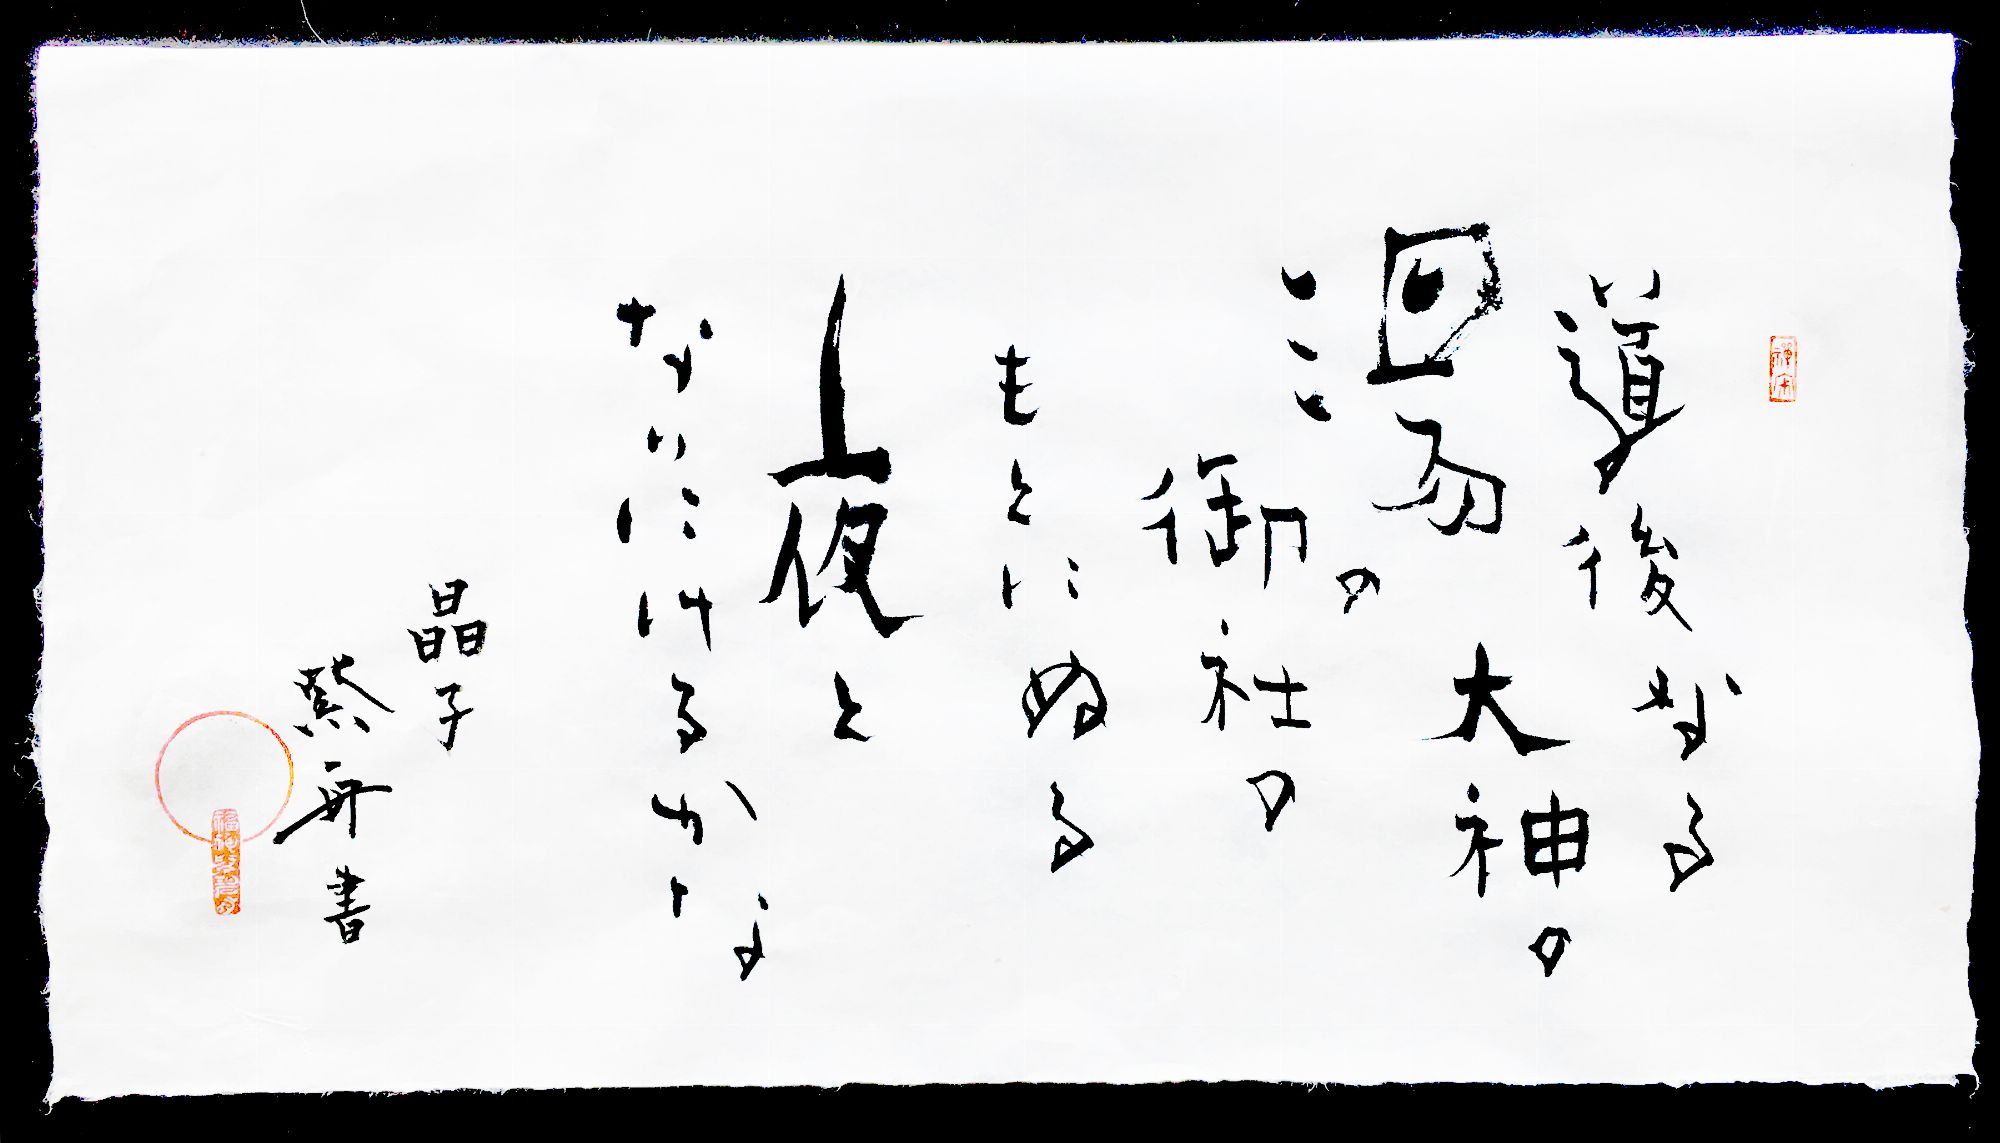 道後なる
湯の大神の
御社の
もとにぬる
夜と
なりにけるかな
晶子
紫舟書